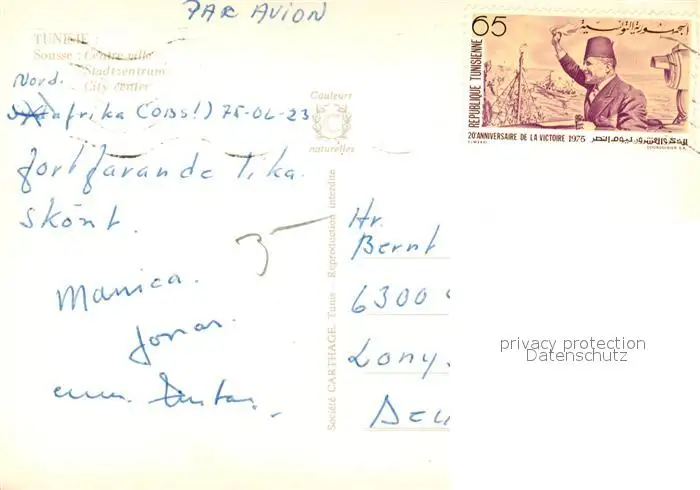 PAR AVION
TUNISIE
Sousse : Centre ville
Stadtzentrum
City center
Nord.
afrika (OBS!) 75-06-23
fortfarande lika
skönt.
Monica.
Jonas.
Couleurs
C
naturelles
Société CARTHAGE, Tunis - Reproduction interdite
65
الجمهورية التونسية
REPUBLIQUE TUNISIENNE
20e ANNIVERSAIRE DE LA VICTOIRE 1975
الذكرى العشرون ليوم النصر
Hr.
Bernt
6300
privacy protection
Datenschutz